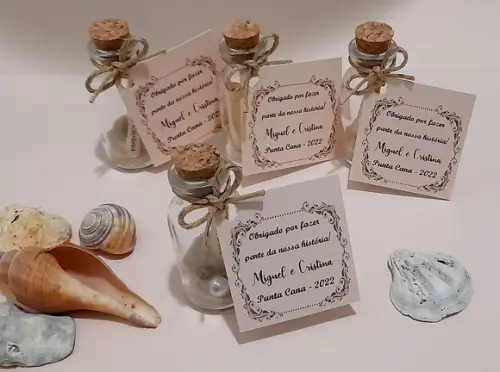 Obrigado por fazer
parte da nossa história!
Miguel e Cristina
Punta Cana - 2022
Obrigado por fazer
parte da nossa história!
Miguel e Cristina
Punta Cana - 2022
Obrigado por fazer
parte da nossa história!
Miguel e Cristina
Punta Cana - 2022
Obrigado por fazer
parte da nossa história!
Miguel e Cristina
Punta Cana - 2022